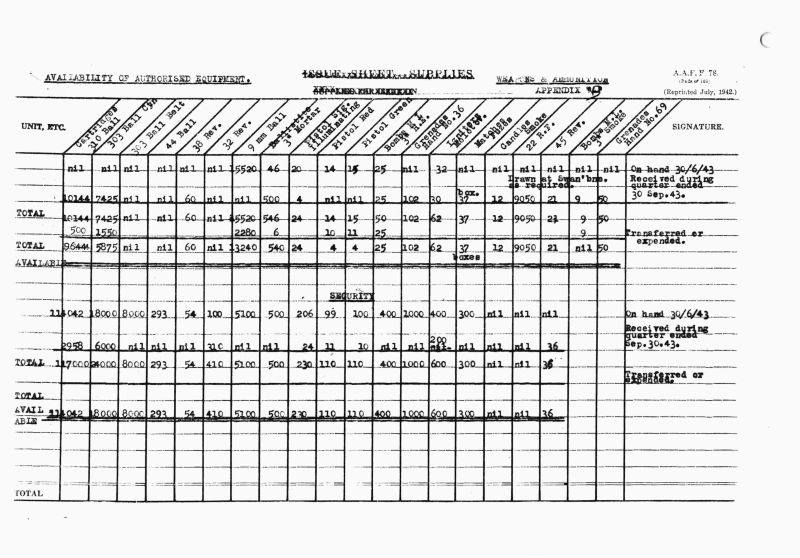 AVAILABILITY OF AUTHORISED EQUIPMENT.
ISSUE SHEET SUPPLIES
WEAPONS & AMMUNITION
APPENDIX
A.A.F. F 78.
(Reprinted July, 1942.)
UNIT, ETC.
Cartridges
303 Ball Belt
44 Ball
38 Rev.
32 Rev.
9 mm Ball
3" Mortar
Pistol Sig. Illuminating
Pistol Red
Pistol Green
Bombs
3" H.E.
Grenades Hand No.36
Matches
Candles Smoke
22 R.F.
45 Rev.
Bombs M.L. 3" Smoke
Grenades Hand No.69
SIGNATURE.
nil nil nil nil nil nil 15520 46 20 14 15 25 nil 32 nil nil nil nil nil nil On hand 30/6/43
Drawn at Swan'bne. as required. Received during
quarter ended
box.
10144 7425 nil nil 60 nil nil 500 4 nil nil 50 102 30 37 12 9050 21 9 50 30 Sep.43.
TOTAL 10144 7425 nil nil 60 nil 15520 546 24 14 15 50 102 62 37 12 9050 21 9 50
500 1550 2280 6 10 11 25 9 Transferred or
expended.
TOTAL 9644 5875 nil nil 60 nil 13240 540 24 4 4 25 102 62 37 12 9050 21 nil 50
AVAILABLE boxes
SECURITY
114042 18000 8000 293 54 100 5100 500 206 99 100 400 1000 400 300 nil nil nil On hand 30/6/43
Received during
quarter ended
Sep.30.43.
200
2958 6000 nil nil nil 310 nil nil 24 11 10 nil nil nil nil nil nil 36
TOTAL 117000 24000 8000 293 54 410 5100 500 230 110 110 400 1000 600 300 nil nil 36
Transferred or
expended.
TOTAL
AVAIL 114042 18000 8000 293 54 410 5100 500 230 110 110 400 1000 600 300 nil nil 36
ABLE
TOTAL